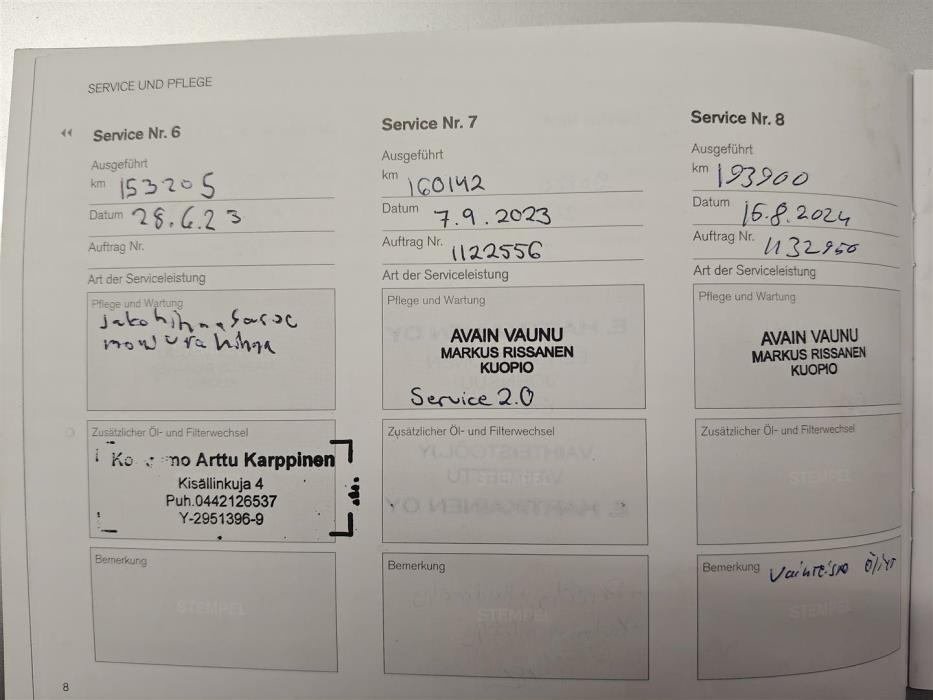 SERVICE UND PFLEGE
Service Nr. 6
Ausgeführt
km 153205
Datum 28.6.23
Auftrag Nr.
Art der Serviceleistung
Pflege und Wartung
jakohihnasarja
Zusätzlicher Öl- und Filterwechsel
Arttu Karppinen
Kisällinkuja 4
Puh.0442126537
Y-2951396-9
Bemerkung
STEMPEL
Service Nr. 7
Ausgeführt
km 160142
Datum 7.9.2023
Auftrag Nr. 1122556
Art der Serviceleistung
Pflege und Wartung
AVAIN VAUNU
MARKUS RISSANEN
KUOPIO
Service 2.0
Zusätzlicher Öl- und Filterwechsel
Bemerkung
STEMPEL
Service Nr. 8
Ausgeführt
km 193900
Datum 15.8.2024
Auftrag Nr. 1132950
Art der Serviceleistung
Pflege und Wartung
AVAIN VAUNU
MARKUS RISSANEN
KUOPIO
Zusätzlicher Öl- und Filterwechsel
STEMPEL
Bemerkung Vaihteisto Öljyt
STEMPEL
8